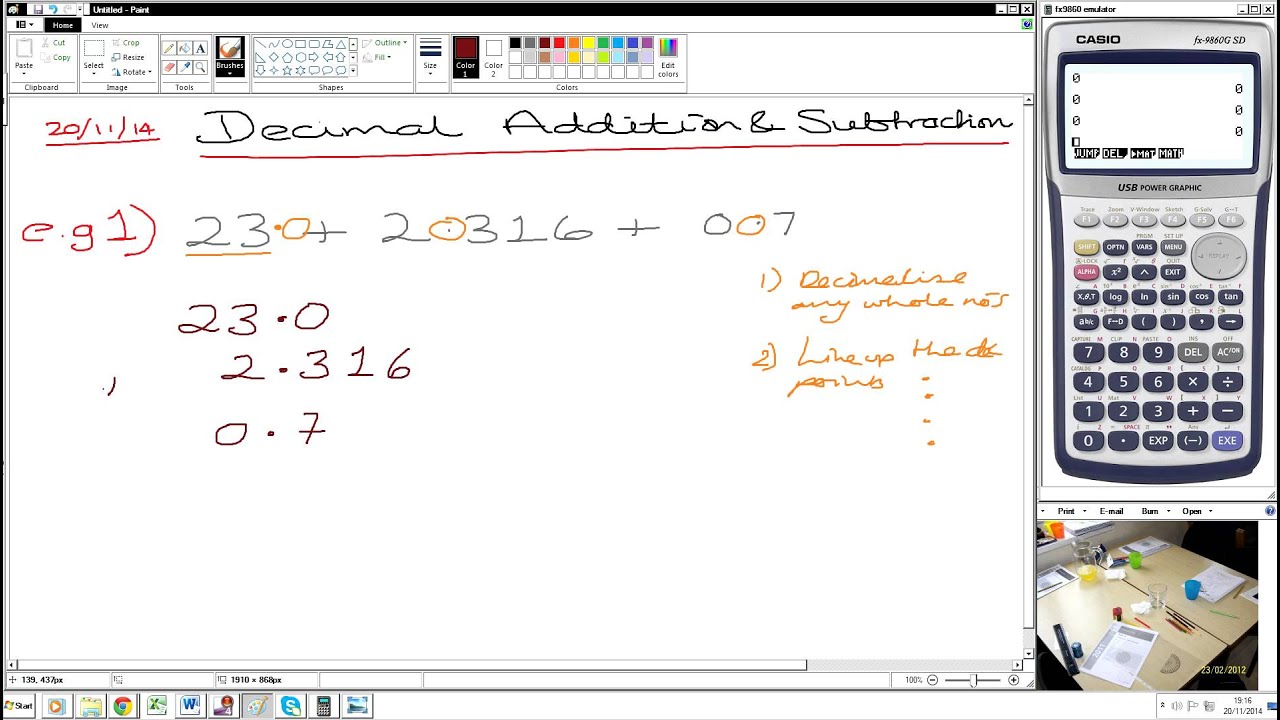 Untitled - Paint
Home View
Paste Cut Copy
Select Crop Resize Rotate
Brushes
Shapes
Outline Fill
Size
Color 1 Color 2 Edit colors
Clipboard Image Tools Shapes Colors
20/11/14 Decimal Addition & Subtraction
e.g 1) 23·0 + 2·316 + 0·7
1) Decimalise
any whole nos
2) Line up the
points
23·0
2·316
0·7
139, 437px 1910 × 868px 100%
fx9860 emulator
CASIO fx-9860G SD
0
0
0
0
0
0
JUMP DEL ▶MAT MATH
USB POWER GRAPHIC
Trace Zoom V-Window Sketch G-Solv G↔T
F1 F2 F3 F4 F5 F6
PRGM SET UP
SHIFT OPTN VARS MENU
REPLAY
A-LOCK QUIT
ALPHA x² ^ EXIT
X,θ,T log ln sin cos tan
a b/c F↔D ( ) , →
CAPTURE CLIP PASTE INS OFF
7 8 9 DEL AC/ON
CATALOG
4 5 6 × ÷
List Mat
1 2 3 + −
SPACE Ans
0 · EXP (−) EXE
Print E-mail Burn Open
23/02/2012
Start
19:16
20/11/2014